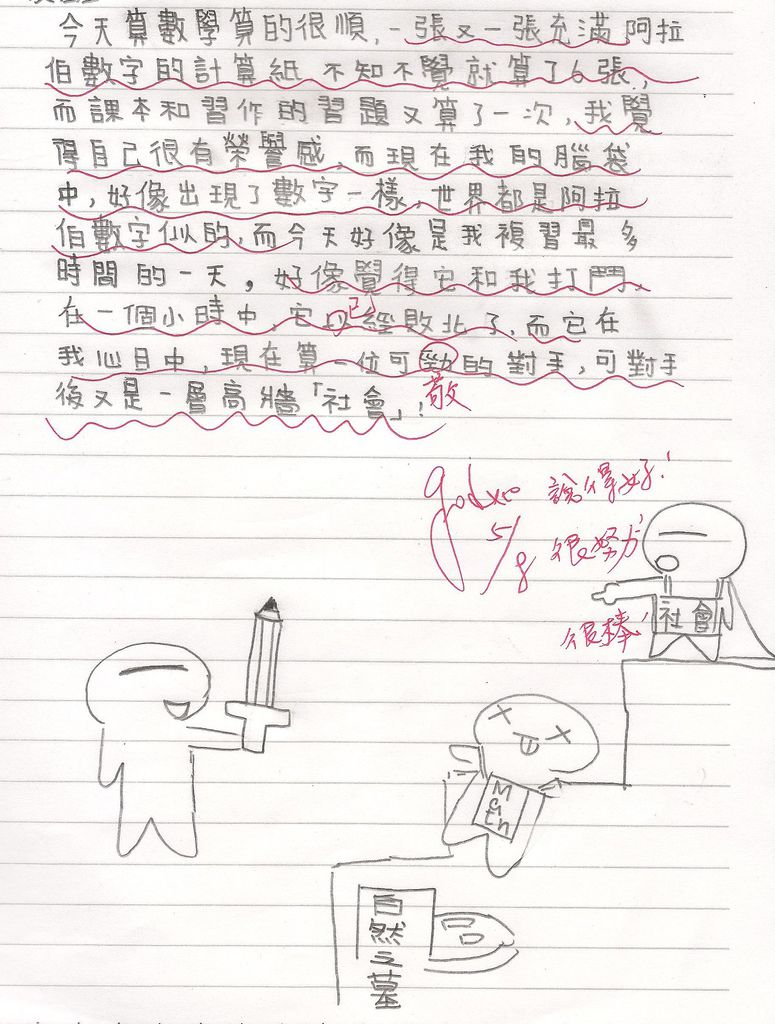 今天算數學算的很順,一張又一張充滿阿拉
伯數字的計算紙不知不覺就算了6張,
而課本和習作的習題又算了一次,我覺
得自己很有榮譽感,而現在我的腦袋
中,好像出現了數字一樣,世界都是阿拉
伯數字似的,而今天好像是我複習最多
時間的一天,好像覺得它和我打鬥,
在一個小時中,它以經敗北了,而它在
已
我心目中,現在算一位可勁的對手,可對手
敬
後又是一層高牆「社會」!
good
說得好!
5/8
很努力!
很棒!
社會
Math
自然之墓